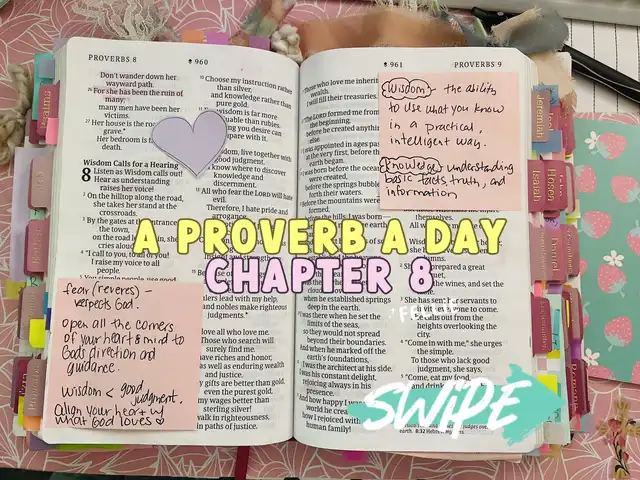 PROVERBS 8
960
961
PROVERBS 9
Don't wander down her
wayward path.
For she has been the ruin of
many;
many men have been her
victims.
Her house is the road
grave.
Her bedroom is the
death.
Wisdom Calls for a Hearing
8 Listen as Wisdom calls out!
Hear as understanding
raises her voice!
On the hilltop along the road,
she takes her stand at the
crossroads.
By the gates at the entrance
the town,
on the road
cries aloud,
"I call to you, to all of you!
I raise my voice to all
people.
You simple people, use good
fear (reveres) -
respects God.
open all the corners
of your heart & mind to
God's direction and
guidance.
wisdom < good
judgment.
align your heart w/
what God loves
Choose my instruction rather
than silver,
and knowledge rather than
pure gold.
wisdom is far more
valuable than rubies.
you desire can
compare with it.
Wisdom, live together with
good judgment.
know where to discover
knowledge and
discernment.
All who fear the LORD will hate
evil.
Therefore, I hate pride and
arrogance,
rulers lead with my help,
and nobles make righteous
judgments.
love all who love me.
Those who search will
surely find me.
have riches and honor,
as well as enduring wealth
and justice.
My gifts are better than gold,
even the purest gold,
my wages better than
sterling silver!
walk in righteousness,
in paths of justice.
Those who love me inherit
wealth.
I will fill their treasuries.
LORD formed me from
the beginning,
before he created anything
else.
I was appointed in ages past,
at the very first, before the
earth began.
I was born before the oceans
were created,
before the springs bubbled
forth their waters.
Before the mountains were
formed,
before the hills, I was born—
when he established springs
deep in the earth.
I was there when he set the
limits of the seas,
so they would not spread
beyond their boundaries.
And when he marked off the
earth's foundations,
I was the architect at his side.
I was his constant delight,
rejoicing always in his
presence.
And how happy I was
world he created;
how I rejoiced with
human family!
wisdom - the ability
to use what you know
in a practical,
intelligent way.
knowledge - understanding
basic facts, truth, and
information
themselves.
All who
prepared a great
the wines, and set the
She has sent her servants to
invite everyone to come.
She calls out from the
heights overlooking the
city.
"Come in with me," she urges
the simple.
To those who lack good
judgment, she says,
"Come, eat my food,
and drink
A PROVERB A DAY
CHAPTER 8
SWIPE
Psalms
Isaiah
Jeremiah
Hosea
Joel